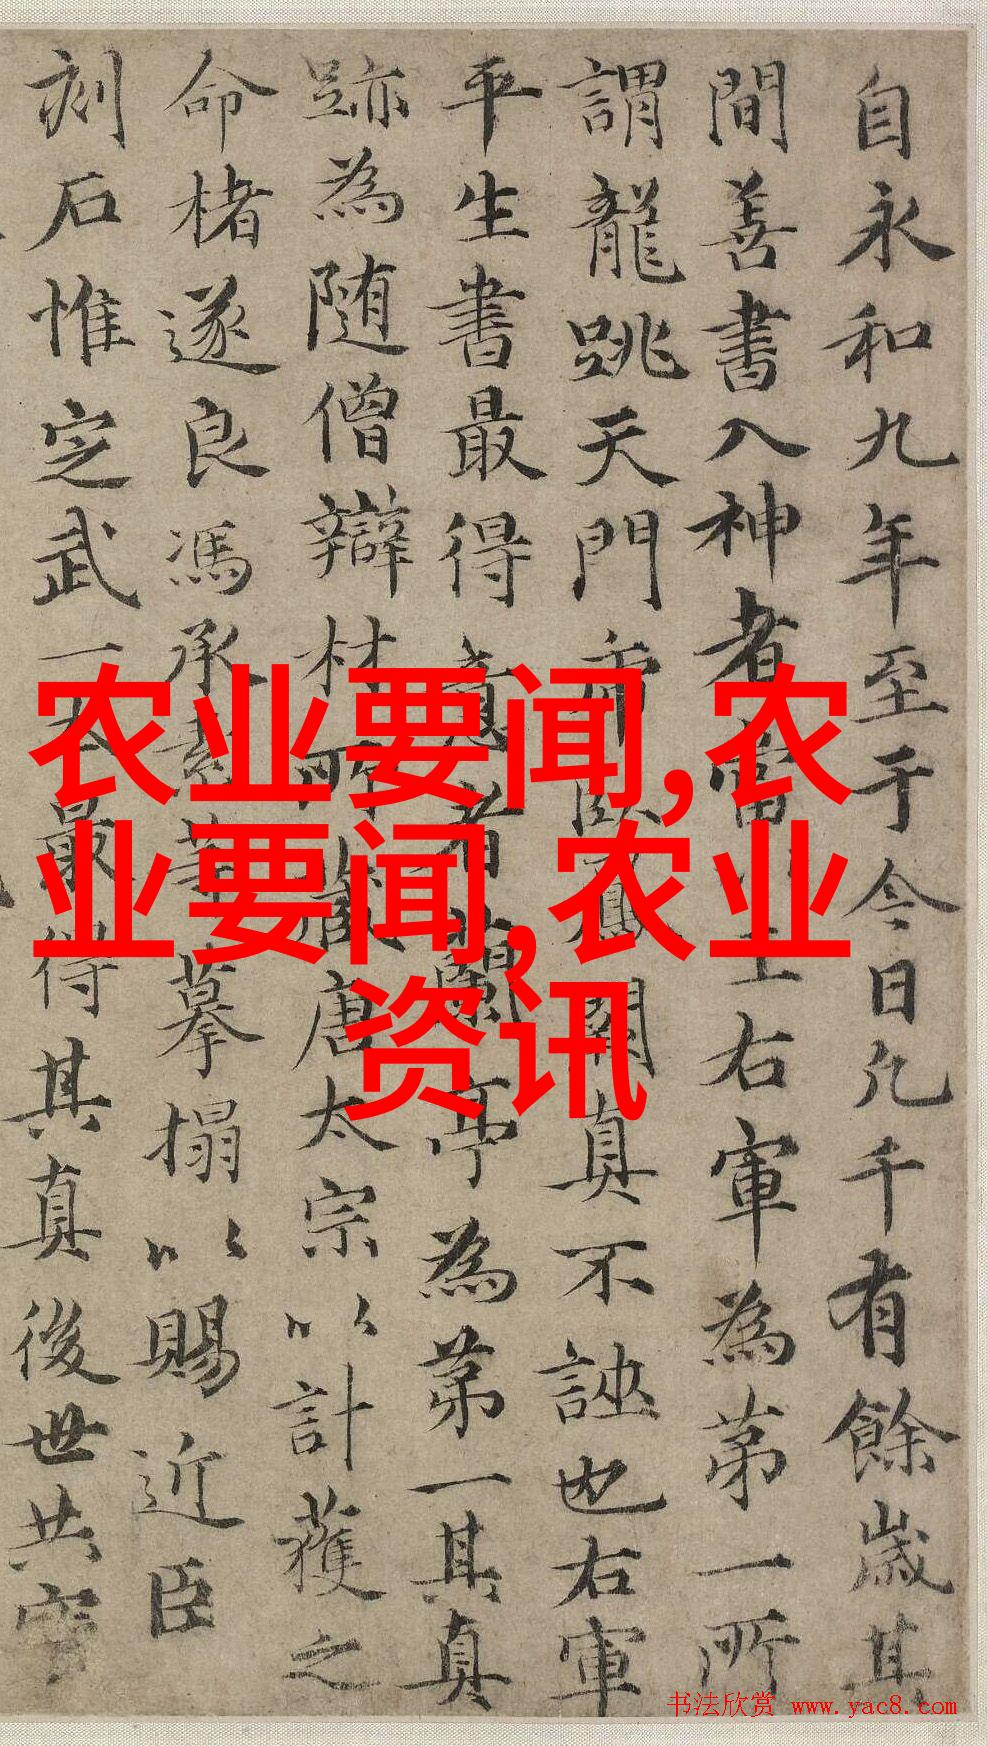 自永和九年至于今日凡千有餘歲其
間善書入神者當王右軍為第一所
謂龍跳天門卧鳳閣真不誣也右軍
平生書最得意者蘭亭為第一其真
跡為随僧辯材所藏唐太宗以計獲之
命楮遂良馮承素等摹搨以賜近臣
刻石惟定武一本最得其真後世共寶
农业要闻,农
业要闻,农业
资讯
书法欣赏 www.yac8.com